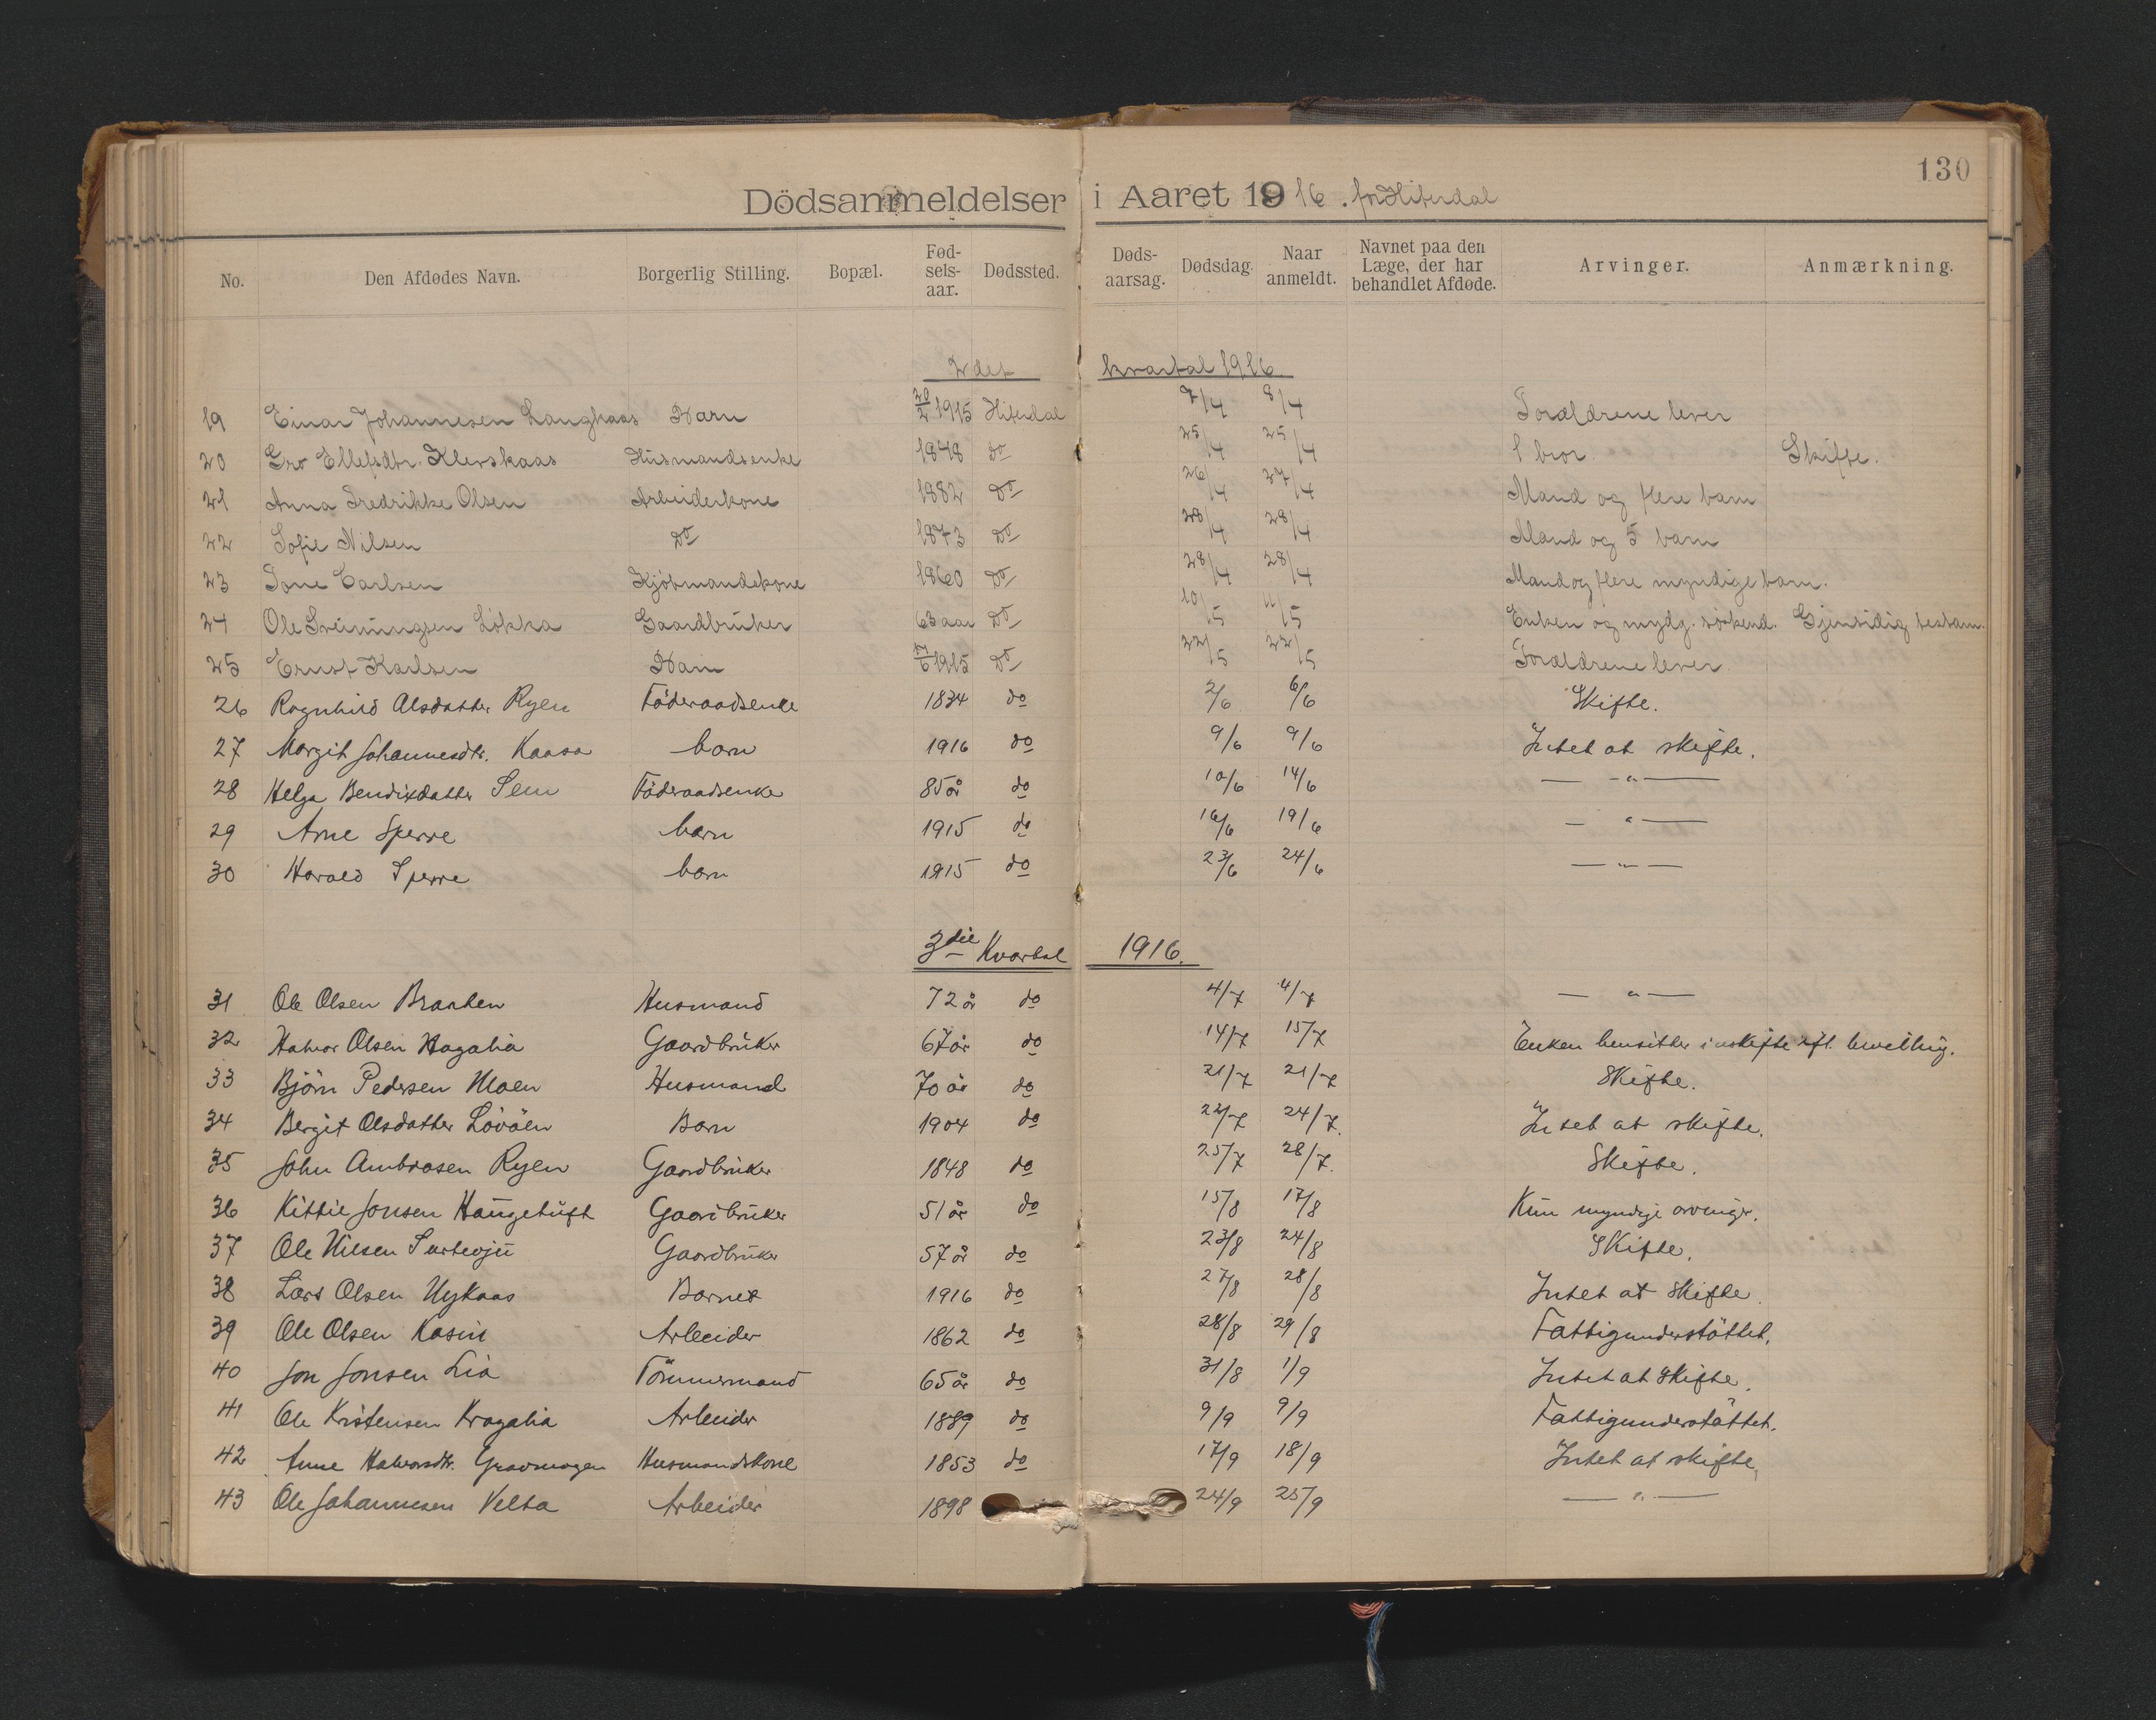 130
Dödsanmeldelser i Aaret 1916. for Hiterdal
No. Den Afdødes Navn. Borgerlig Stilling. Bopæl. Fød-sels-aar. Dødssted. Døds-aarsag. Dødsdag. Naar anmeldt. Navnet paa den Læge, der har behandlet Afdøde. Arvinger. Anmærkning.
2det kvartal 1916
19 Einar Johannesen Langkaas Barn 20/2 1915 Hiterdal 7/4 8/4 Forældrene lever
20 Gro Ellefsdtr. Klevskaas Husmandsenke 1848 do 25/4 25/4 1 bror. Skifte.
21 Anna Fredrikke Olsen Arbeiderkone 1882 Do 26/4 27/4 Mand og flere barn
22 Sofie Nilsen Do 1873 Do 28/4 28/4 Mand og 5 barn
23 Tone Carlsen Kjöbmandskone 1860 Do 28/4 28/4 Mand og flere myndige barn.
24 Ole Sveinungsen Lökka Gaardbruker 63 aar Do 10/5 11/5 Enken og mydg. söskend. Gjensidig testam.
25 Ernst Karlsen Barn 1915 Do 22/5 22/5 Forældrene lever
26 Ragnhild Olsdatter Ryen Föderaadsenke 1834 do 2/6 6/6 Skifte.
27 Margit Johannesdtr. Kaasa barn 1916 do 9/6 9/6 Intet at skifte.
28 Helga Bendixdatter Sem Föderaadsenke 85 år do 10/6 14/6 — " —
29 Arne Sperre barn 1915 do 16/6 19/6 — " —
30 Harald Sperre barn 1915 do 23/6 24/6 — " —
3die Kvartal 1916.
31 Ole Olsen Braaten Husmand 72 år do 4/7 4/7 — " —
32 Halvor Olsen Hagalia Gaardbruker 67 år do 14/7 15/7 Enken hensitter i uskifte efl. bevilling.
33 Björn Pedersen Moen Husmand 70 år do 21/7 21/7 Skifte.
34 Bergit Olsdatter Lövöen Barn 1904 do 22/7 24/7. Intet at skifte.
35 John Ambrosen Ryen Gaardbruker 1848 do 25/7 28/7. Skifte.
36 Kittil Jonsen Haugetuft Gaardbruker 51 år do 15/8 17/8 Kun myndige arvinger.
37 Ole Nilsen Gaardbruker 57 år do 23/8 24/8 Skifte.
38 Lars Olsen Nykaas Barnet 1916 do 27/8 28/8 Intet at skifte.
39 Ole Olsen Kasin Arbeider 1862 do 28/8 29/8 Fattigunderstöttet.
40 Jon Jonsen Lia Tömmermand 65 år do 31/8 1/9 Intet at skifte.
41 Ole Kristensen Kragalia Arbeider 1889 do 9/9 9/9 Fattigunderstöttet.
42 Anne Halvorsdtr. Husmandskone 1853 do 17/9 18/9 Intet at skifte.
43 Ole Johannesen Velta Arbeider 1898 24/9 25/9 — " —